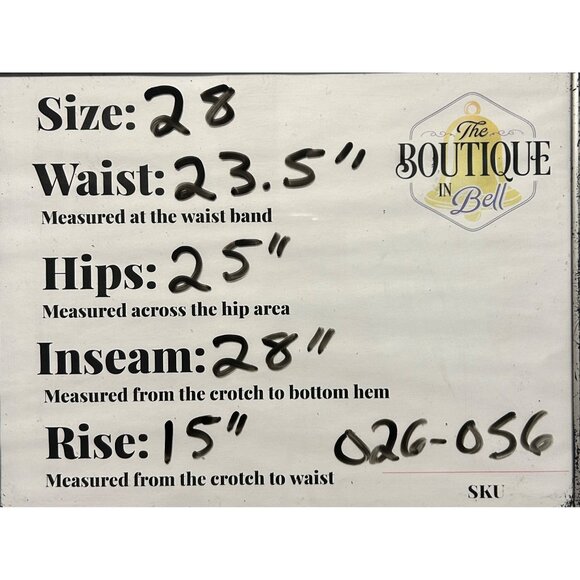 Size: 28
Waist: 23.5"
Measured at the waist band
Hips: 25"
Measured across the hip area
Inseam: 28"
Measured from the crotch to bottom hem
Rise: 15"
Measured from the crotch to waist
The
BOUTIQUE
IN
Bell
026-056
SKU